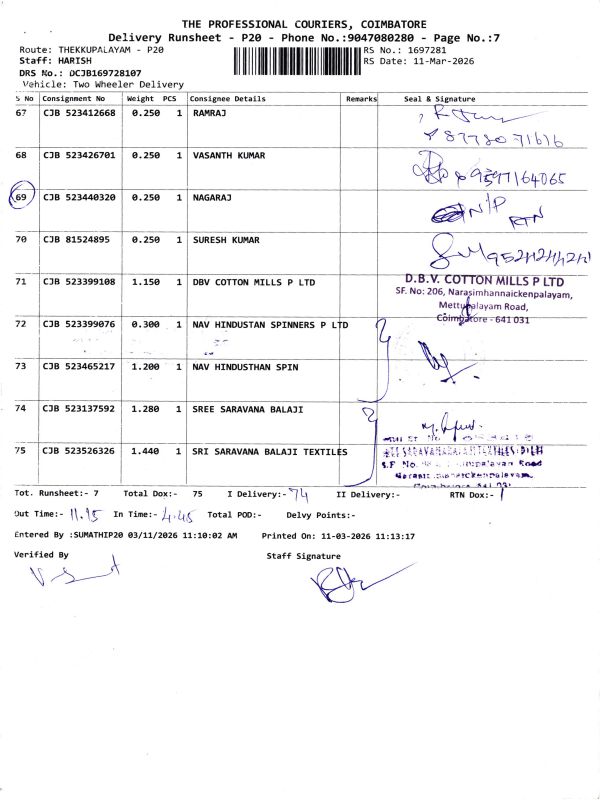 THE PROFESSIONAL COURIERS, COIMBATORE
Delivery Runsheet - P20 - Phone No.:9047080280 - Page No.:7
Route: THEKKUPALAYAM - P20
RS No.: 1697281
Staff: HARISH
RS Date: 11-Mar-2026
DRS No.: DCJB169728107
Vehicle: Two Wheeler Delivery
S No Consignment No Weight PCS Consignee Details Remarks Seal & Signature
67 CJB 523412668 0.250 1 RAMRAJ
8778071616
68 CJB 523426701 0.250 1 VASANTH KUMAR
9597164065
69 CJB 523440320 0.250 1 NAGARAJ N/P
RTN
70 CJB 81524895 0.250 1 SURESH KUMAR
71 CJB 523399108 1.150 1 DBV COTTON MILLS P LTD
D.B.V. COTTON MILLS P LTD
SF. No: 206, Narasimhannaickenpalayam,
Mettupalayam Road,
Coimbatore - 641 031
72 CJB 523399076 0.300 1 NAV HINDUSTAN SPINNERS P LTD
73 CJB 523465217 1.200 1 NAV HINDUSTHAN SPIN
74 CJB 523137592 1.280 1 SREE SARAVANA BALAJI
75 CJB 523526326 1.440 1 SRI SARAVANA BALAJI TEXTILES
S.F No.
Road
Tot. Runsheet:- 7 Total Dox:- 75 I Delivery:- 74 II Delivery:- RTN Dox:- 1
Out Time:- 11.15 In Time:- 4.45 Total POD:- Delvy Points:-
Entered By :SUMATHIP20 03/11/2026 11:10:02 AM Printed On: 11-03-2026 11:13:17
Verified By Staff Signature